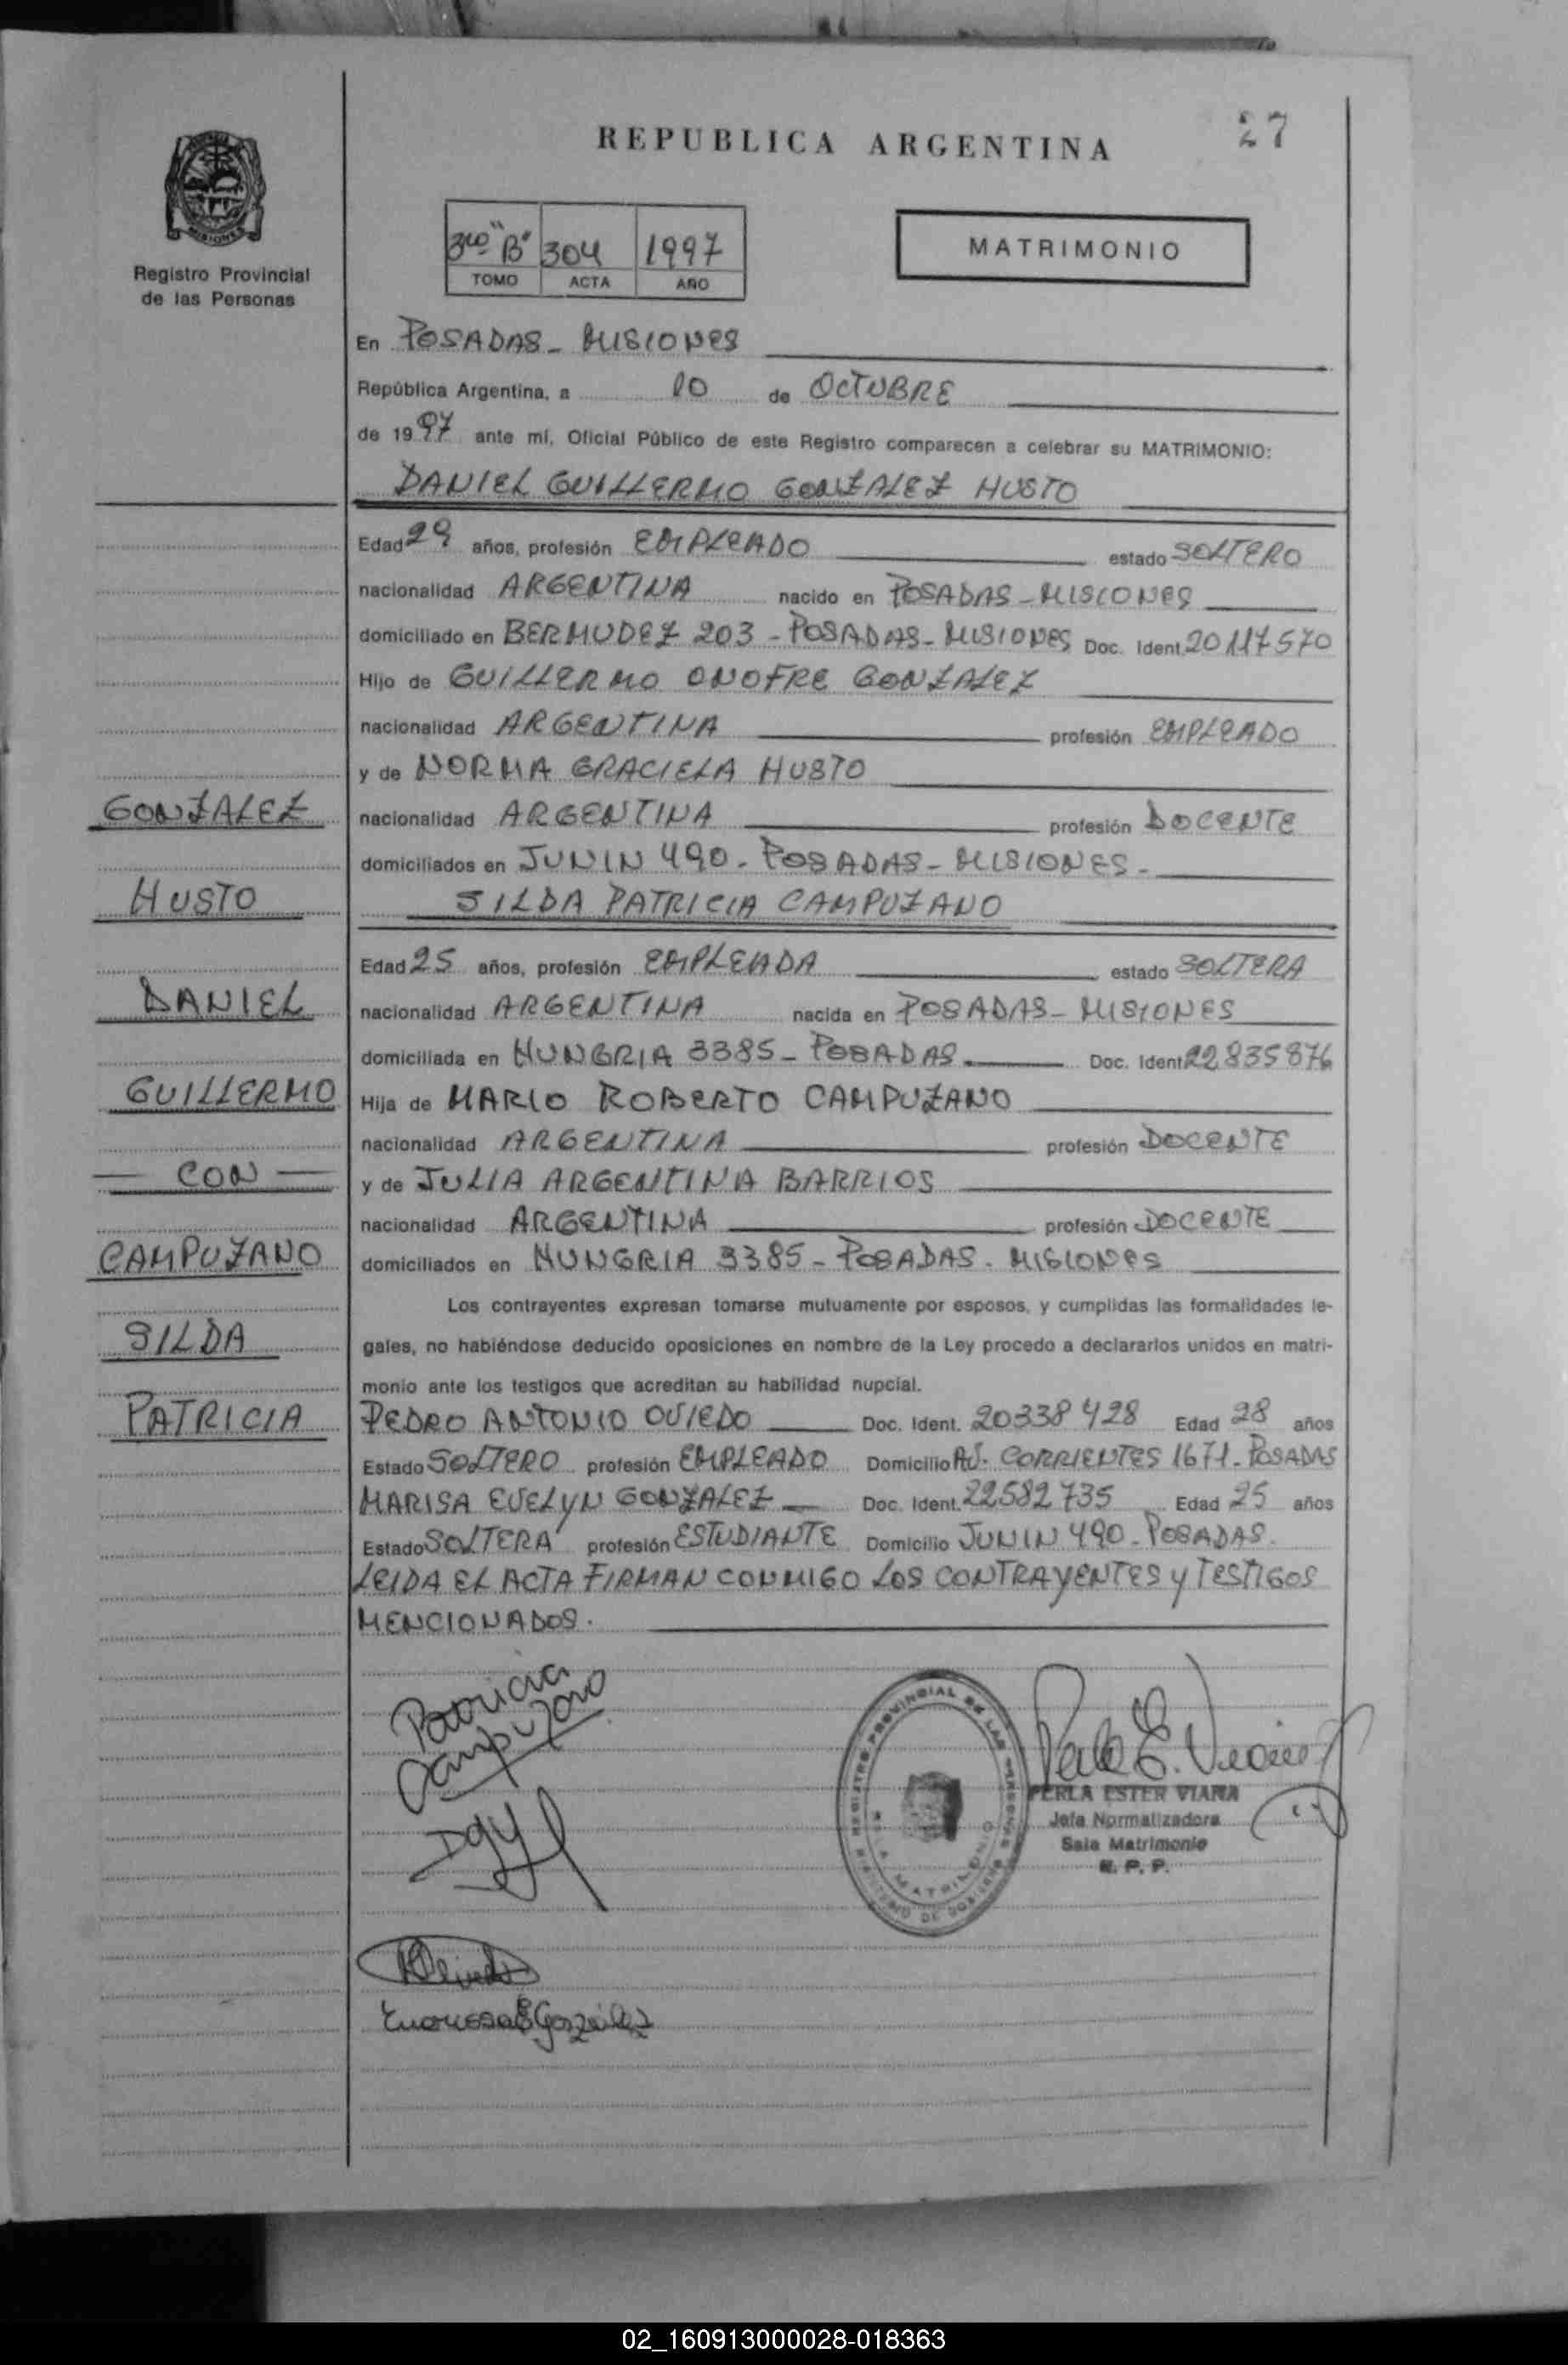 REPUBLICA ARGENTINA
27
MISIONES
Registro Provincial
de las Personas
3ro "B" 304 1997
TOMO ACTA AÑO
MATRIMONIO
En POSADAS - MISIONES
República Argentina, a 10 de OCTUBRE
de 1997 ante mí, Oficial Público de este Registro comparecen a celebrar su MATRIMONIO:
DANIEL GUILLERMO GONZALEZ HUSTO
Edad 29 años, profesión EMPLEADO estado SOLTERO
nacionalidad ARGENTINA nacido en POSADAS - MISIONES
domiciliado en BERMUDEZ 203 - POSADAS - MISIONES Doc. Ident. 20117570
Hijo de GUILLERMO ONOFRE GONZALEZ
nacionalidad ARGENTINA profesión EMPLEADO
y de NORMA GRACIELA HUSTO
nacionalidad ARGENTINA profesión DOCENTE
domiciliados en JUNIN 490 - POSADAS - MISIONES -
SILDA PATRICIA CAMPUZANO
Edad 25 años, profesión EMPLEADA estado SOLTERA
nacionalidad ARGENTINA nacida en POSADAS - MISIONES
domiciliada en HUNGRIA 3385 - POSADAS Doc. Ident. 22835876
Hija de MARIO ROBERTO CAMPUZANO
nacionalidad ARGENTINA profesión DOCENTE
y de JULIA ARGENTINA BARRIOS
nacionalidad ARGENTINA profesión DOCENTE
domiciliados en HUNGRIA 3385 - POSADAS - MISIONES
Los contrayentes expresan tomarse mutuamente por esposos, y cumplidas las formalidades le-
gales, no habiéndose deducido oposiciones en nombre de la Ley procedo a declararlos unidos en matri-
monio ante los testigos que acreditan su habilidad nupcial.
PEDRO ANTONIO OVIEDO Doc. Ident. 20338428 Edad 28 años
Estado SOLTERO profesión EMPLEADO Domicilio AV. CORRIENTES 1671 - POSADAS
MARISA EVELYN GONZALEZ Doc. Ident. 22582735 Edad 25 años
Estado SOLTERA profesión ESTUDIANTE Domicilio JUNIN 490 - POSADAS.
LEIDA EL ACTA FIRMAN CONMIGO LOS CONTRAYENTES y TESTIGOS
MENCIONADOS.
GONZALEZ
HUSTO
DANIEL
GUILLERMO
- CON -
CAMPUZANO
SILDA
PATRICIA
Patricia
Campuzano
REGISTRO PROVINCIAL DE LAS PERSONAS
MINISTERIO DE GOBIERNO
SALA MATRIMONIO
Perla E. Viana
PERLA ESTER VIANA
Jefa Normalizadora
Sala Matrimonio
R. P. P.
González
02_160913000028-018363